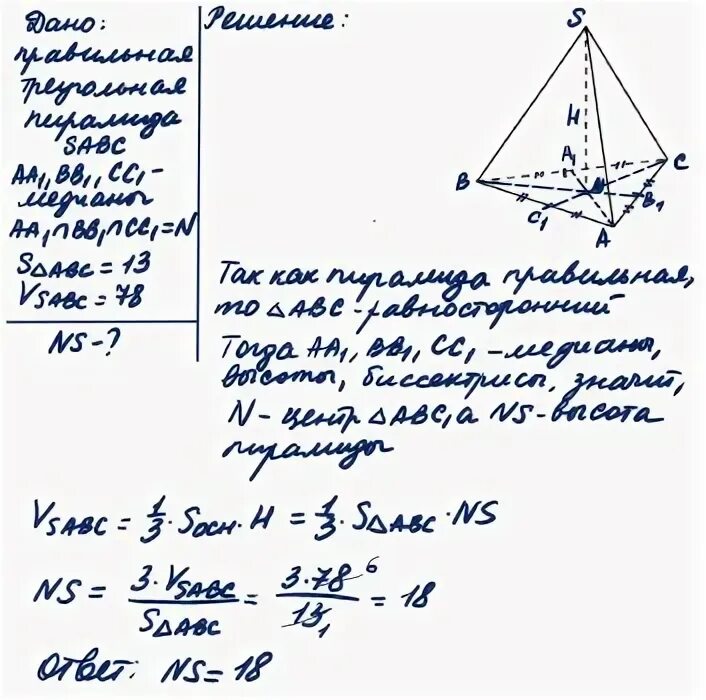 Дано:
правильная
треугольная
пирамида
SABC
AA₁, BB₁, CC₁-
медианы
AA₁∩BB₁∩CC₁=N
S△ABC = 13
VSABC = 78
NS-?
Решение:
S
H
A₁
B
C
N
B₁
C₁
A
Так как пирамида правильная,
то △ABC-равносторонний
Тогда AA₁, BB₁, CC₁ -медианы,
высоты, биссектрисы, значит,
N- центр △ABC, а NS-высота
пирамиды
VSABC = 1/3 · Sосн · H = 1/3 · S△ABC · NS
NS = 3·VSABC / S△ABC = 3·78 6 / 13 1 = 18
Ответ: NS = 18